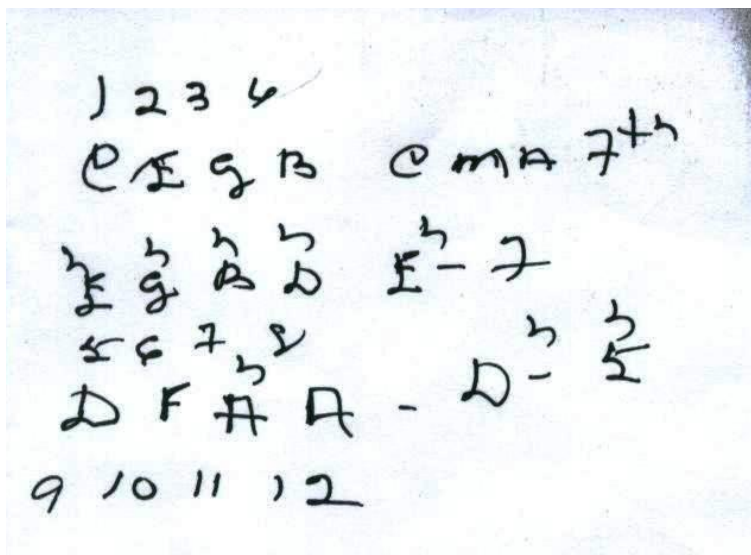 1 2 3 4
C E G B C MA 7th
♭E ♭G ♭B ♭D E♭- 7
5 6 7 8
D F ♭A A - D-♭ ♭5
9 10 11 12